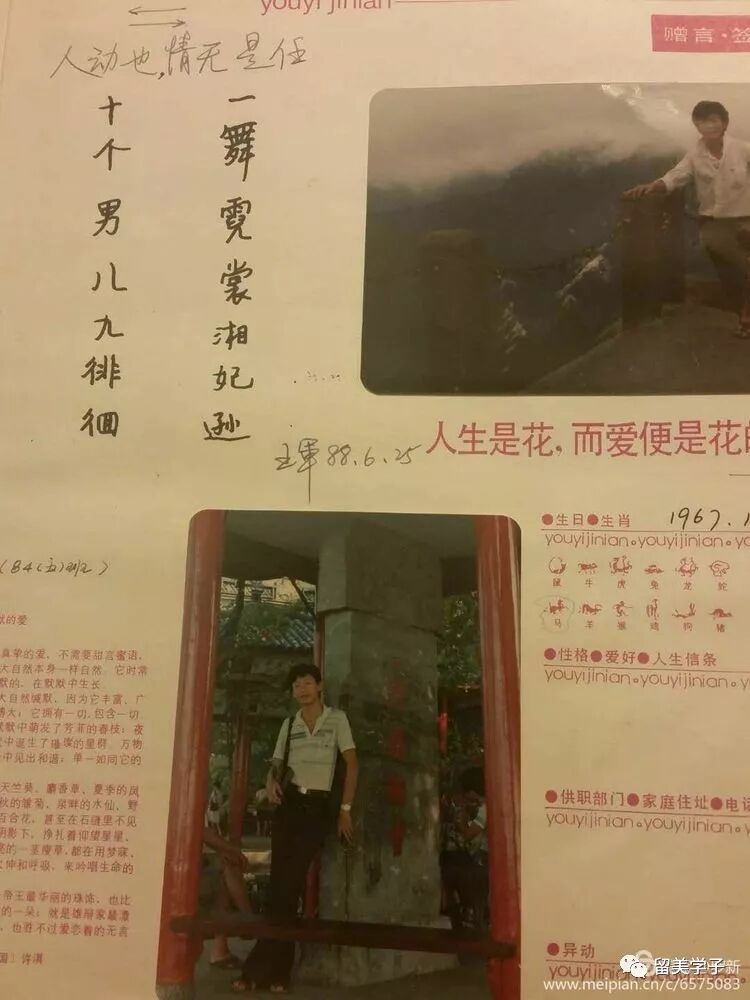 youyi jinian
赠言·签
人动也，情无是任
一舞霓裳湘妃逊
十个男儿九徘徊
王军 88.6.25
人生是花，而爱便是花的
●生日●生肖 1967.1
youyijinian。youyijinian。youyi
鼠 牛 虎 兔 龙 蛇
马 羊 猴 鸡 狗 猪
●性格●爱好●人生信条
youyijinian。youyijinian。youyi
●供职部门●家庭住址●电话
youyijinian。youyijinian。youyi
●异动
youyijinian。
(84(五)班)
的爱
真挚的爱，不需要甜言蜜语，
大自然本身一样自然。它时常
默的，在默默中生长。
大自然缄默，因为它丰富、广
博大；它拥有一切，包含一切
默中萌发了芳菲的春枝；夜
中诞生了璀璨的星群。万物
中见出和谐；单一如同它的
天竺葵、麝香草、夏季的凤
秋的雏菊、泉畔的水仙、野
百合花，甚至在石缝里不见
阴影下，挣扎着仰望星星，
的一茎瘦草，都在用梦寐、
伸和呼吸，来吟唱生命的
帝王最华丽的珠饰，也比
的一朵；就是雄辩家最漂
，也胜不过爱恋着的无言
国：许淇
留美学子
www.meipian.cn/c/6575083